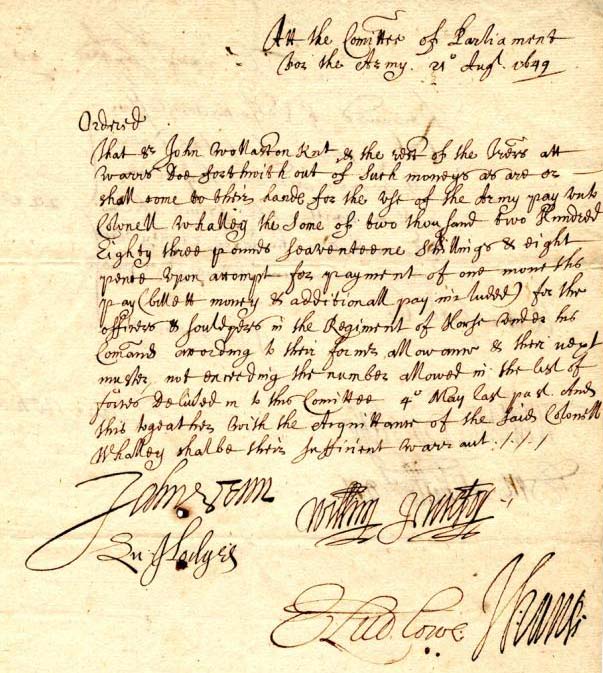 Att the Comittee of Parliament
for the Army. 21º Aug.t 1649
Ordered
That Sr John Wollaston Knt & the rest of the Trers att
Warrs doe forthwith out of such moneys as are or
shall come to their hands for the use of the Army pay unto
Colonell Whalley the some of two thousand two hundred
Eighty three pounds seaventeene shillings & eight
pence upon accompt for payment of one moneths
pay (billett money & additionall pay included) for the
officers & souldyers in the Regiment of Horse under his
Comand according to their former allowance & their next
muster, not exceeding the number allowed in the list of
forces delived in to this Comittee 4º May last past. And
this togeather with the Acquittance of the said Colonell
Whalley shalbe their sufficient warrant. / . / . /
Lu: Hodges
E Ludlowe